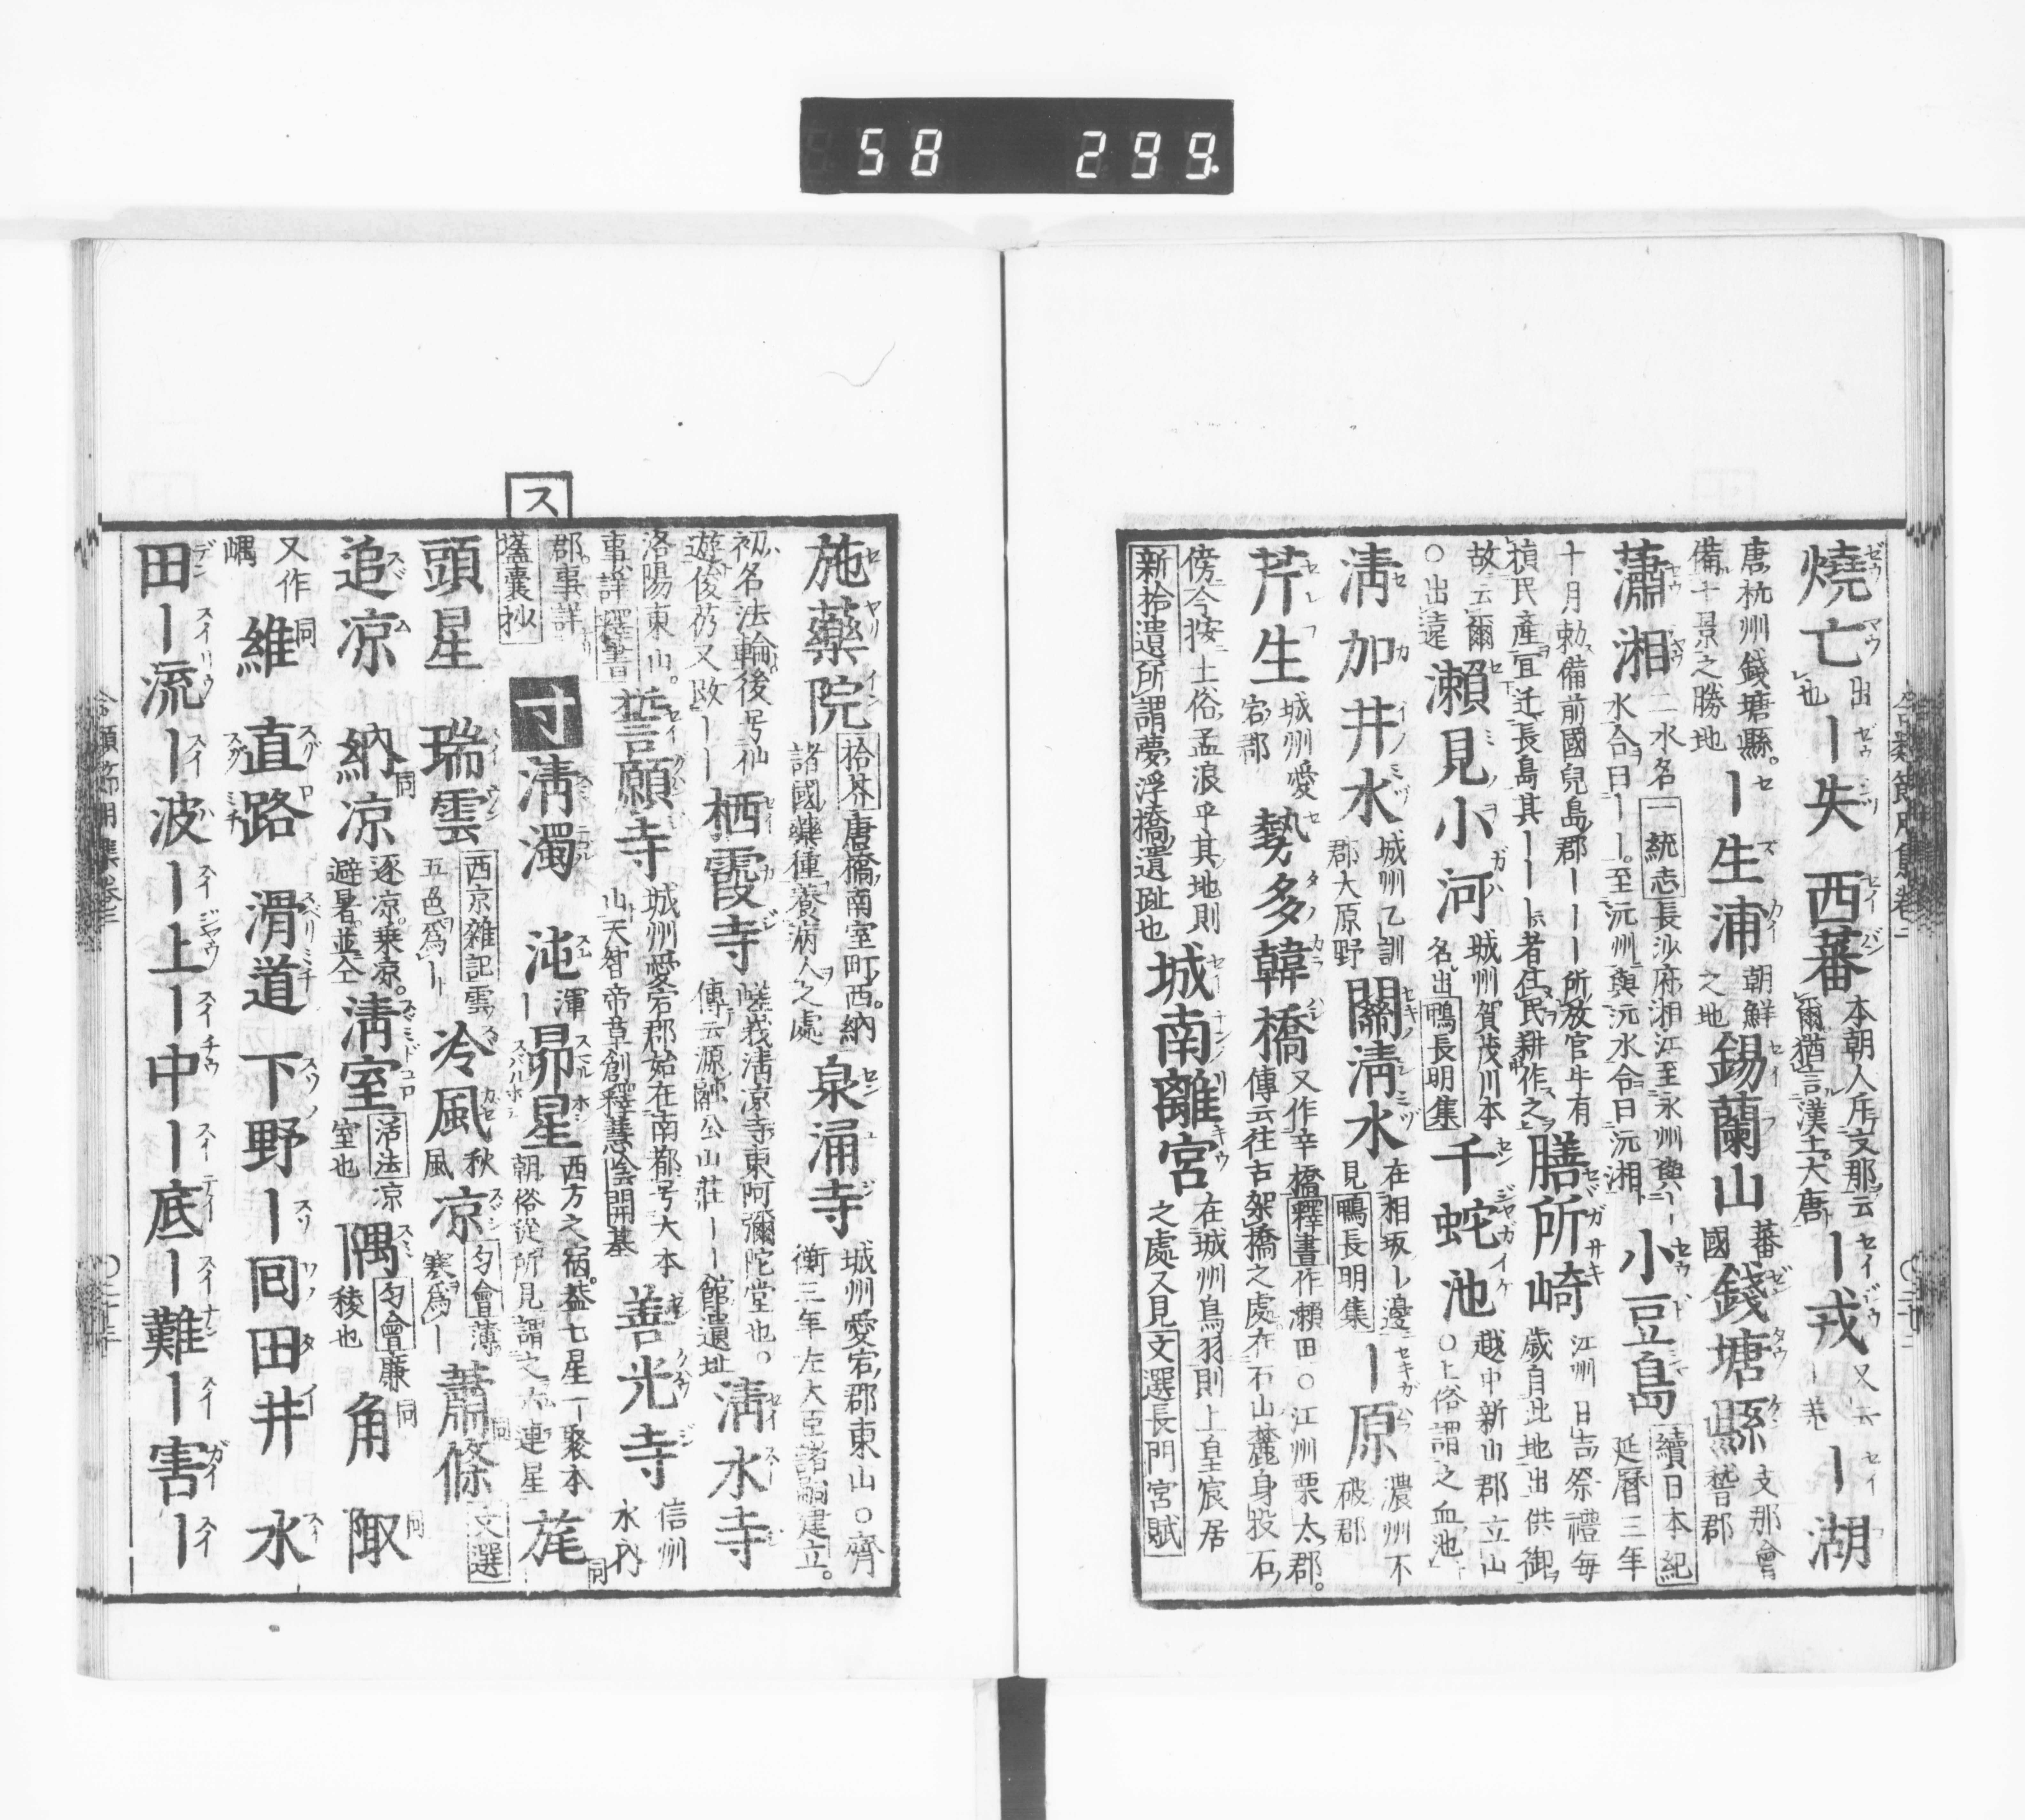 58 299
燒亡 出也 ー失 西蕃 本朝人斥支那云爾猶言漢土大唐 ー戎 又云ー羌 ー湖
唐杭州錢塘縣。備十景之勝地 ー生浦 朝鮮之地 錫蘭山 蕃國 錢塘縣 支那會嵆郡
瀟湘 二水名 一統志 長沙府湘江至永州與ー水合曰ーー。至沅州與沅水合曰沅湘 小豆島 續日本紀 延曆三年
十月勅備前國兒島郡ーーー所放官牛有損民產宜迁長島其ーーー者住民耕作之 膳所崎 江州日吉祭禮每歲自此地出供御
故云爾○出遠 瀨見小河 城州賀茂川本名出鴨長明集 千蛇池 越中新山郡立山○土俗謂之血池
淸加井水 城州乙訓郡大原野 關淸水 在相坂邊見鴨長明集 ー原 濃州不破郡
芹生 城州愛宕郡 勢多韓橋 又作辛橋釋書作瀨田○江州栗太郡。傳云往古架橋之處在石山麓身投石
傍今按土俗孟浪乎其地則新拾遺所謂夢浮橋遺趾也 城南離宮 在城州鳥羽則上皇宸居之處又見文選長門宮賦
ス
施藥院 拾芥 唐橋南室町西。納諸國藥種養病人之處 泉涌寺 城州愛宕郡東山○齊衡三年左大臣諸嗣建立。
初名法輪後号仙遊後芿又改ーー 栖霞寺 嵯峨淸凉寺東阿彌陀堂也。傳云源融公山莊ーー館遺址 淸水寺
洛陽東山。事詳釋書 誓願寺 城州愛宕郡始在南都号大本山天智帝草創釋慧隱開基 善光寺 信州水內
郡。事詳壒囊抄 寸 淸濁 沌 渾ー 昴星 西方之宿。蓋七星一聚本朝俗從所見謂之六連星 旄
頭星 瑞雲 西京雜記 雲五色爲ー 冷風 秋風 凉 匀會 薄寒爲ー 蕭條 文選
追凉 納凉 逐凉。乗凉。避暑。並仝 淸室 活法 凉室也 隅 匀會 廉稜也 角 陬
又作嵎 維 直路 滑道 下野 ー同 田井 水
田 ー流 ー波 ー上 ー中 ー底 ー難 ー害 ー